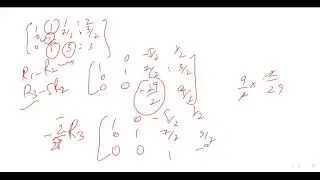 1 1 1 : 2
0 1 7/2 : 3/2
0 1 5 : 3
R1-R2
R3-5R2
1 0 -5/2 1/2
0 1 7/2 : 3/2
0 0 -29/2 9/2
9/2 × 2/29
R3
1 0 -5/2 1/2
0 1 7/2 3/2
0 0 1